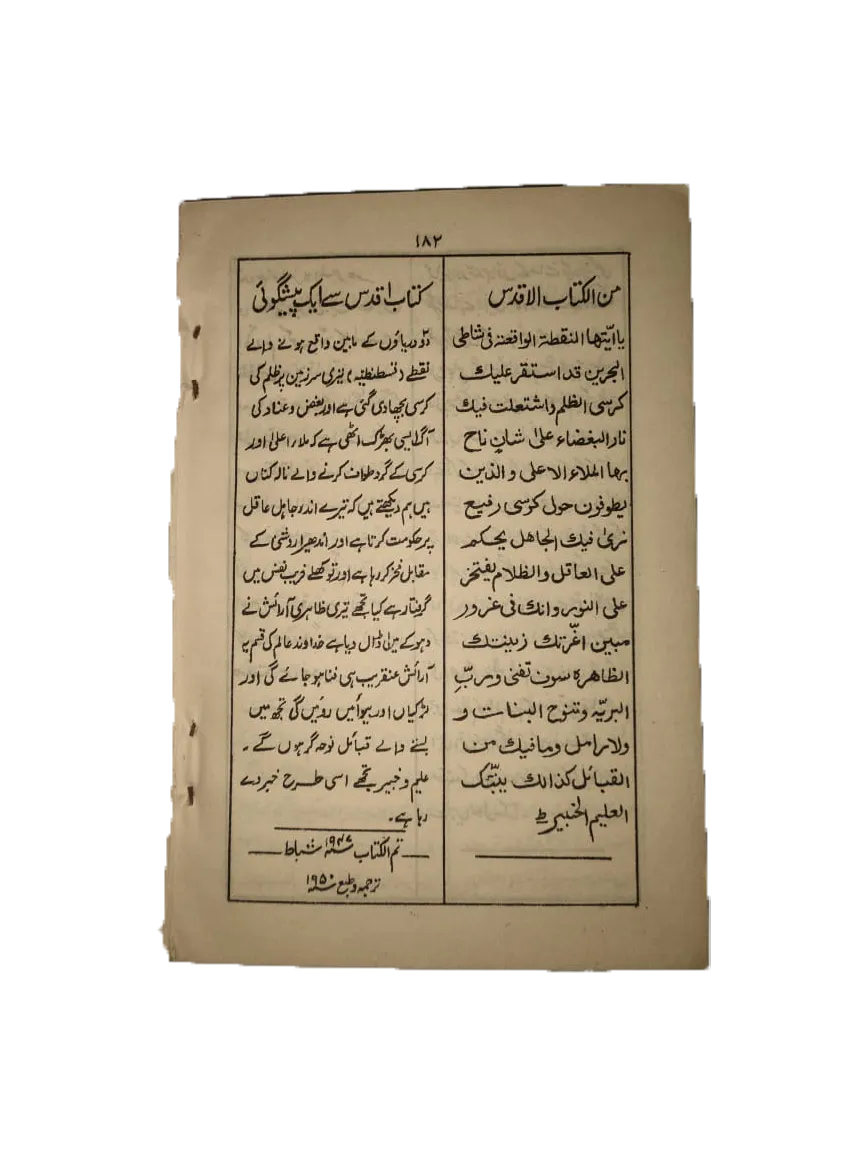 ۱۸۲
من الكتاب الاقدس
يا ايّتها النقطة الواقعة فى شاطى
البحرين قد استقر عليك
كرسى الظلم واشتعلت فيك
نار البغضاء علىٰ شانٍ ناح
بها الملاء الاعلى والذين
يطوفون حول كرسى رفيع
نرىٰ فيك الجاهل يحكم
على العاقل والظلام يفتخر
على النور وانك فى غرور
مبين اغرّتك زينتك
الظاهرة سوف تفنى وربِّ
البريّه وتنوح البنات و
ولارامل ومافيك من
القبائل كذالك ينبّئك
العليم الخبير ط
کتاب اقدس سے ایک پیشگوئی
دو دریاؤں کے مابین واقع ہونے والے
نقطے (قسطنطنیہ) تیری سرزمین پر ظلم کی
کرسی بچھادی گئی ہے اور بغض و عناد کی
آگ ایسی بھڑک اٹھی ہے کہ ملاء اعلیٰ اور
کرسی کے گرد طواف کرنے والے نالہ کناں
ہیں ہم دیکھتے ہیں کہ تیرے اندر جاہل عاقل
پر حکومت کرتا ہے اور اندھیرا روشنی کے
مقابل فخر کر رہا ہے اور تو کھلے فریب نفس میں
گرفتار ہے کیا تجھے تیری ظاہری آرائش نے
دہوکے میں ڈال دیا ہے خداوند عالم کی قسم یہ
آرائش عنقریب ہی فنا ہو جائے گی اور
لڑکیاں اور بیوائیں روئیں گی تجھ میں
بسنے والے قبائل نوحہ گر ہوں گے ۔
علیم و خبیر تجھے اسی طرح خبر دے
رہا ہے۔
تم الکتاب ۱۹۴۷ شباط
ترجمہ و طبع ۱۹۵۰